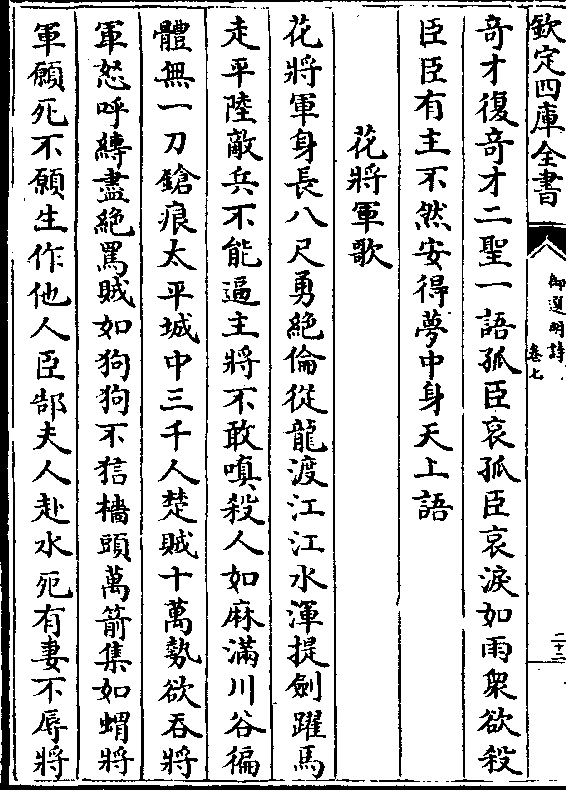 欽定四庫全書
御選明詩
卷七
二十二
奇才復奇才二聖一語孤臣哀孤臣哀淚如雨衆欲殺
臣臣有主不然安得夢中身天上語
花將軍歌
花將軍身長八尺勇絶倫從龍渡江江水渾提劍躍馬
走平陸敵兵不能逼主將不敢嗔殺人如麻滿川谷徧
體無一刀鎗痕太平城中三千人楚賊十萬勢欲吞將
軍怒呼縳盡絶罵賊如狗狗不狺檣頭萬箭集如蝟將
軍願死不願生作他人臣郜夫人赴水死有妻不辱將